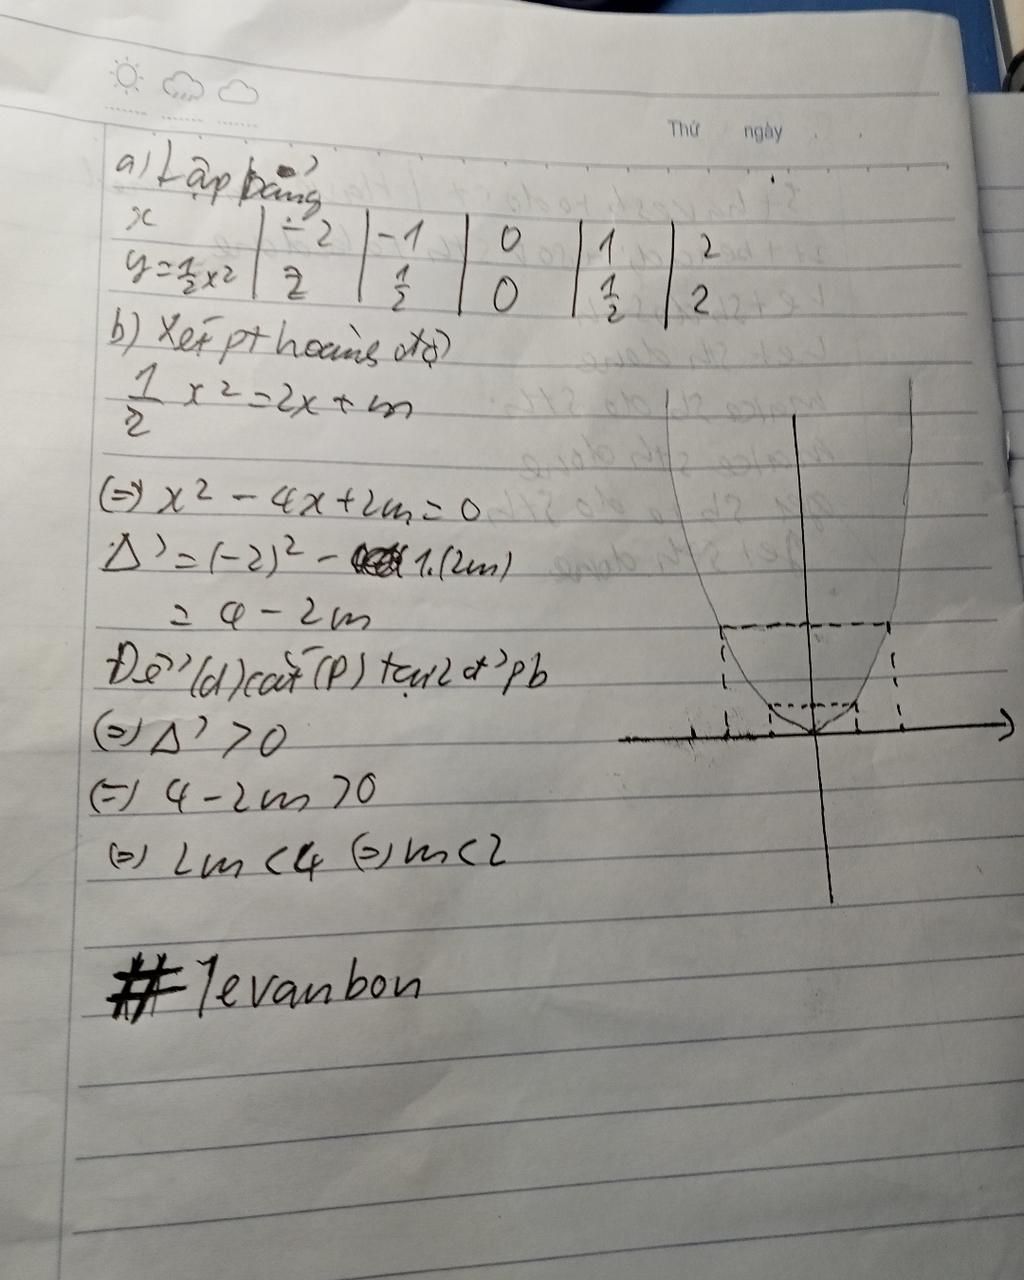 Thứ ngày
a) Lập bảng
x | -2 | -1 | 0 | 1 | 2
y = 1/2 x² | 2 | 1/2 | 0 | 1/2 | 2
b) Xét pt hoành độ
1/2 x² = 2x + m
(=) x² - 4x + 2m = 0
Δ' = (-2)² - 1.(2m)
= 4 - 2m
Để (d) cắt (P) tại 2 đ' pb
(=) Δ' > 0
(=) 4 - 2m > 0
(=) 2m < 4 (=) m < 2
#levanbon